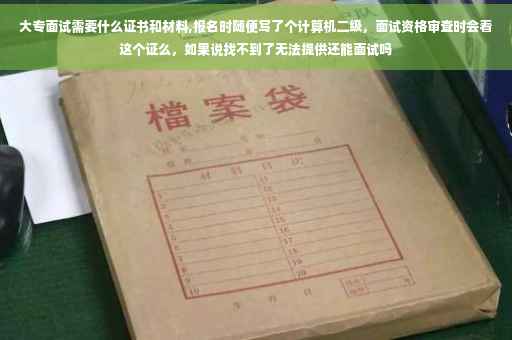 大专面试需要什么证书和材料,报名时随便写了个计算机二级，面试资格审查时会看
这个证么，如果说找不到了无法提供还能面试吗
檔案袋
材料目次
1
2
3
4
5
6
7
8
9
10
11
12
13
14
15
16
17
18
19
20
年 月 日